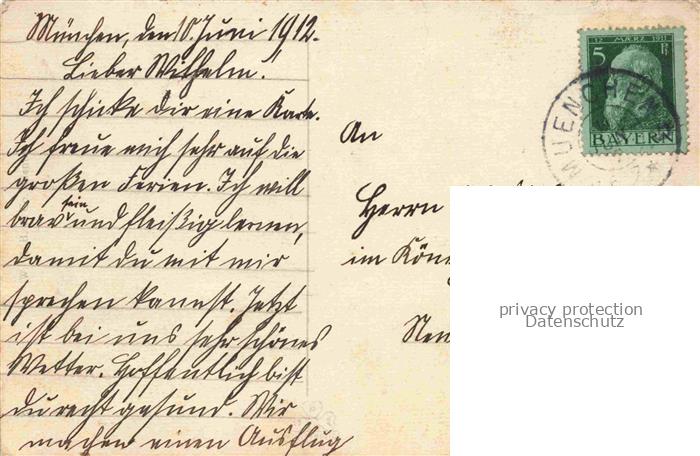 München, den 10. Juni 1912.
Lieber Wilhelm!
Ich schicke dir eine Karte.
Ich freue mich sehr auf die
großen Ferien. Ich will
brav sein und fleißig lernen,
damit du mit mir
sprechen kannst. Jetzt
ist bei uns sehr schönes
Wetter. Hoffentlich bist
du recht gesund. Wir
machen einen Ausflug
12 MÄRZ 1911
5 Pf
BAYERN
MUENCHEN
An
Herrn
im Kön
privacy protection
Datenschutz